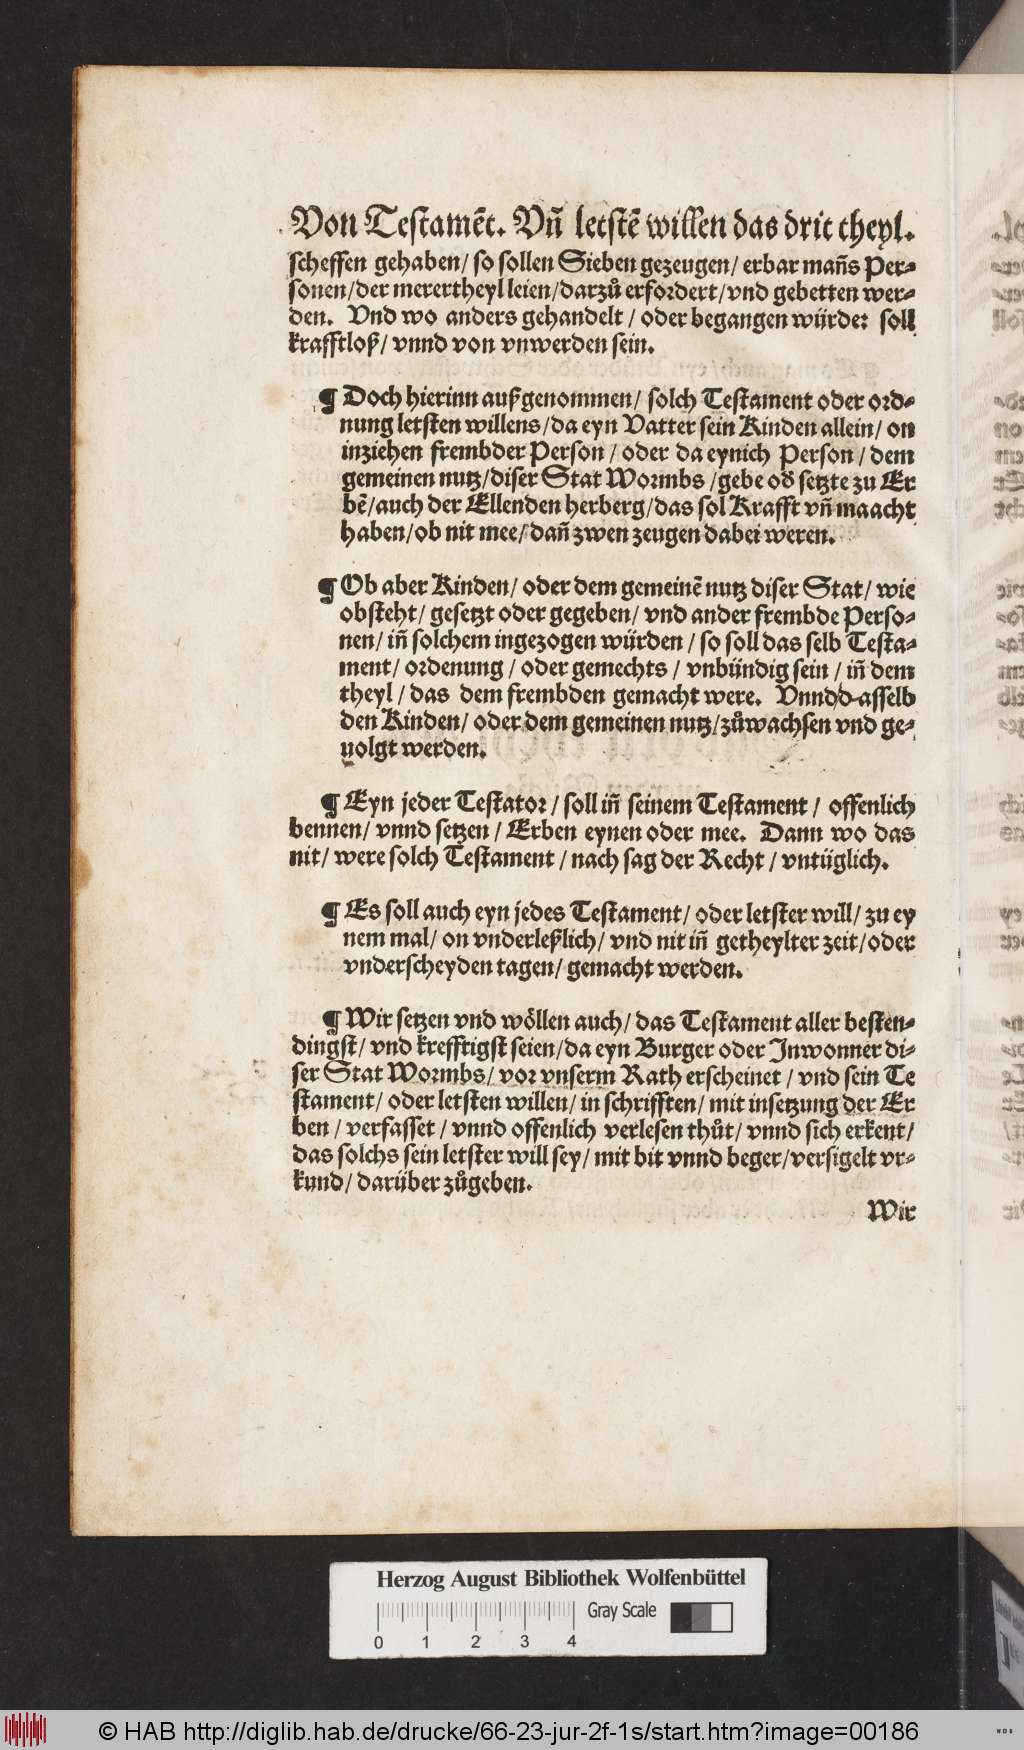 Von Testamēt. Vñ letstē willen das drit theyl.
scheffen gehaben/ so sollen Sieben gezeugen/ erbar mañs Per⸗
sonen/der merertheyl leien/darzů erfordert/vnd gebetten wer⸗
den. Vnd wo anders gehandelt / oder begangen würde: soll
krafftloß/ vnnd von vnwerden sein.
¶ Doch hierinn außgenommen/ solch Testament oder ord⸗
nung letsten willens/da eyn Vatter sein Kinden allein/ on
inziehen frembder Person / oder da eynich Person / dem
gemeinen nutz/diser Stat Wormbs /gebe od̄ setzte zu Er
bē/auch der Ellenden herberg/das sol Krafft vñ maacht
haben/ob nit mee/ dañ zwen zeugen dabei weren.
¶ Ob aber Kinden/ oder dem gemeinē nutz diser Stat/ wie
obsteht/ gesetzt oder gegeben/ vnd ander frembde Perso⸗
nen/ iñ solchem ingezogen würden / so soll das selb Testa⸗
ment/ ordenung / oder gemechts / vnbündig sein / iñ dem
theyl / das dem frembden gemacht were. Vnnd/d-asselb
den Kinden/ oder dem gemeinen nutz/zůwachsen vnd ge⸗
uolgt werden.
¶ Eyn jeder Testator/ soll iñ seinem Testament / offenlich
bennen/ vnnd setzen / Erben eynen oder mee. Dann wo das
nit/ were solch Testament / nach sag der Recht / vntüglich.
¶ Es soll auch eyn jedes Testament/ oder letster will/ zu ey
nem mal/ on vnderleßlich/ vnd nit iñ getheylter zeit/oder
vnderscheyden tagen/ gemacht werden.
¶ Wir setzen vnd wöllen auch/ das Testament aller besten⸗
dingst/ vnd krefftigst seien/da eyn Burger oder Inwonner di⸗
ser Stat Wormbs/ vor vnserm Rath erscheinet / vnd sein Te
stament/ oder letsten willen/ in schrifften/ mit insetzung der Er
ben / verfasset / vnnd offenlich verlesen thůt/ vnnd sich erkent/
das solchs sein letster will sey/ mit bit vnnd beger/versigelt vr⸗
kund/ darüber zůgeben.
Wir
Herzog August Bibliothek Wolfenbüttel
Gray Scale
0 1 2 3 4
© HAB http://diglib.hab.de/drucke/66-23-jur-2f-1s/start.htm?image=00186